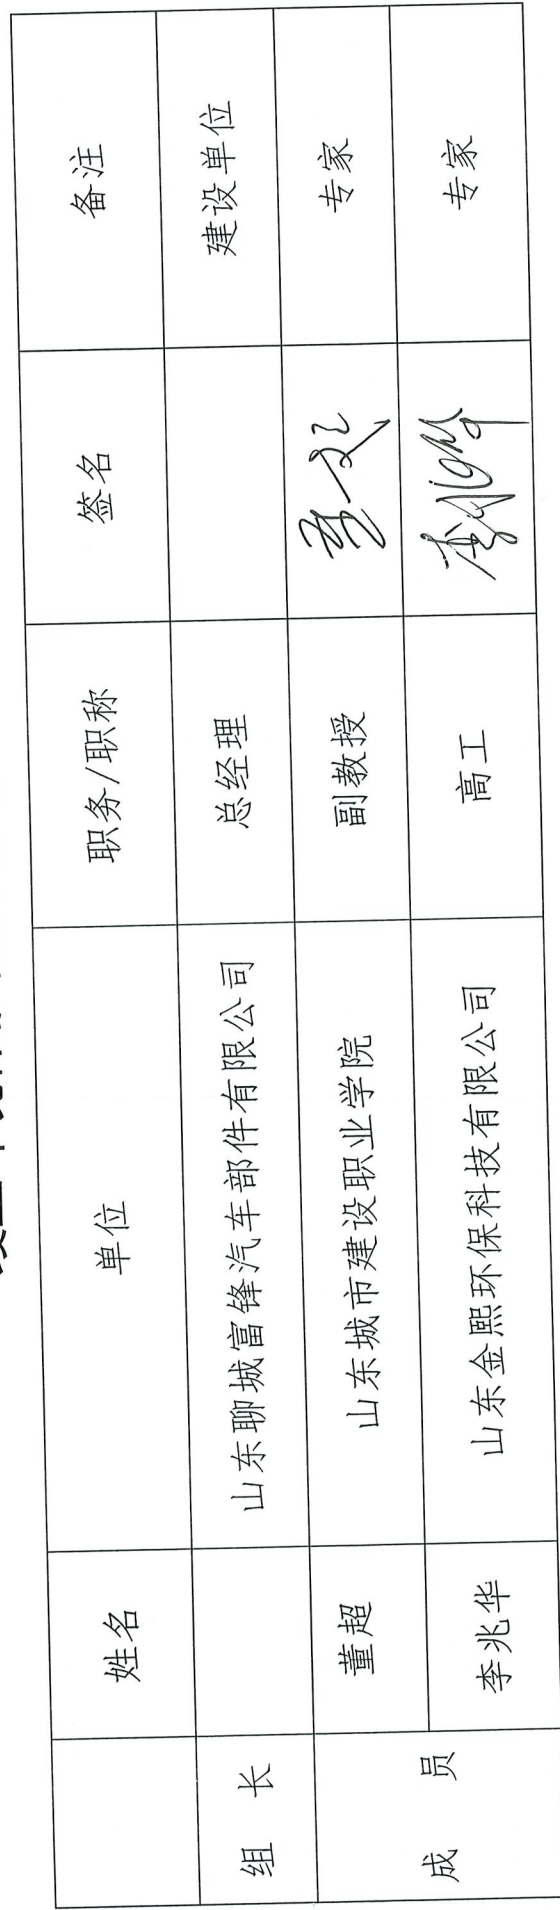 姓名 单位 职务/职称 签名 备注
组长 山东聊城富锋汽车部件有限公司 总经理 建设单位
成员 董超 山东城市建设职业学院 副教授 专家
李兆华 山东金熙环保科技有限公司 高工 专家